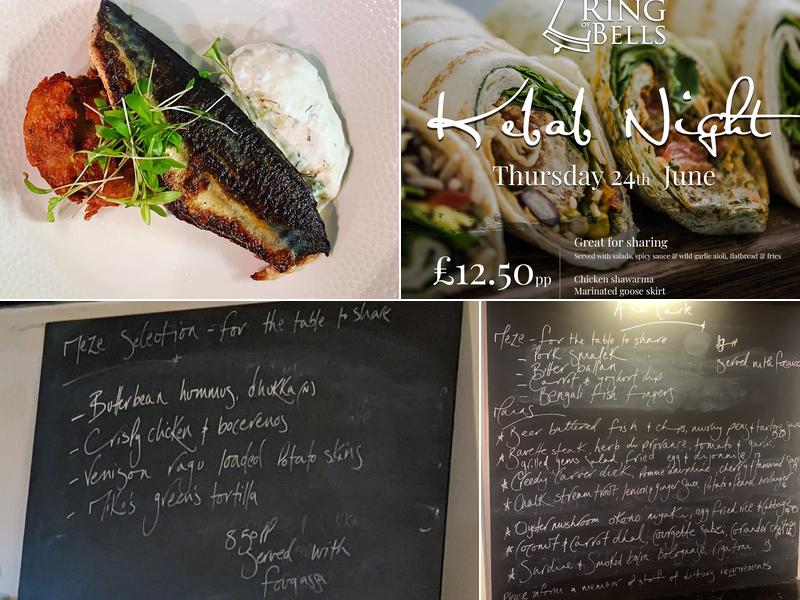 RING
OF
BELLS
Kebab Night
Thursday 24th June
£12.50pp
Great for sharing
Served with salads, spicy sauce & wild garlic aioli, flatbread & fries
Chicken shawarma
Marinated goose skirt
Meze Selection - for the table to share
- Butterbean hommus, dhukka (N)
- Crispy chicken & bocerenos
- Venison ragu loaded Potato skins
- Mike's greens tortilla
850PP
Served with
fougassa
Meze - for the table to share
- Pork
- Carrot & yoghurt dip
- Bengali fish fingers
Served with
Mains
* Beer battered fish & chips, mushy peas & tartare
* Bavette steak, herb du provance, tomato & garlic
grilled gems salad, fried egg & dijonnaise
* Creedy Carver duck, pomme dauphine, cherry & tamarind
* Chalk stream trout, lemon & ginger
* Oyster mushroom okono miyaki, egg fried rice & cabbage
* Coconut & Carrot dhal, Courgette Sabzi, Coriander
* Sardine & Smoked bacon bolognaise, rigatoni 13
Please inform a member of staff of dietary requirements